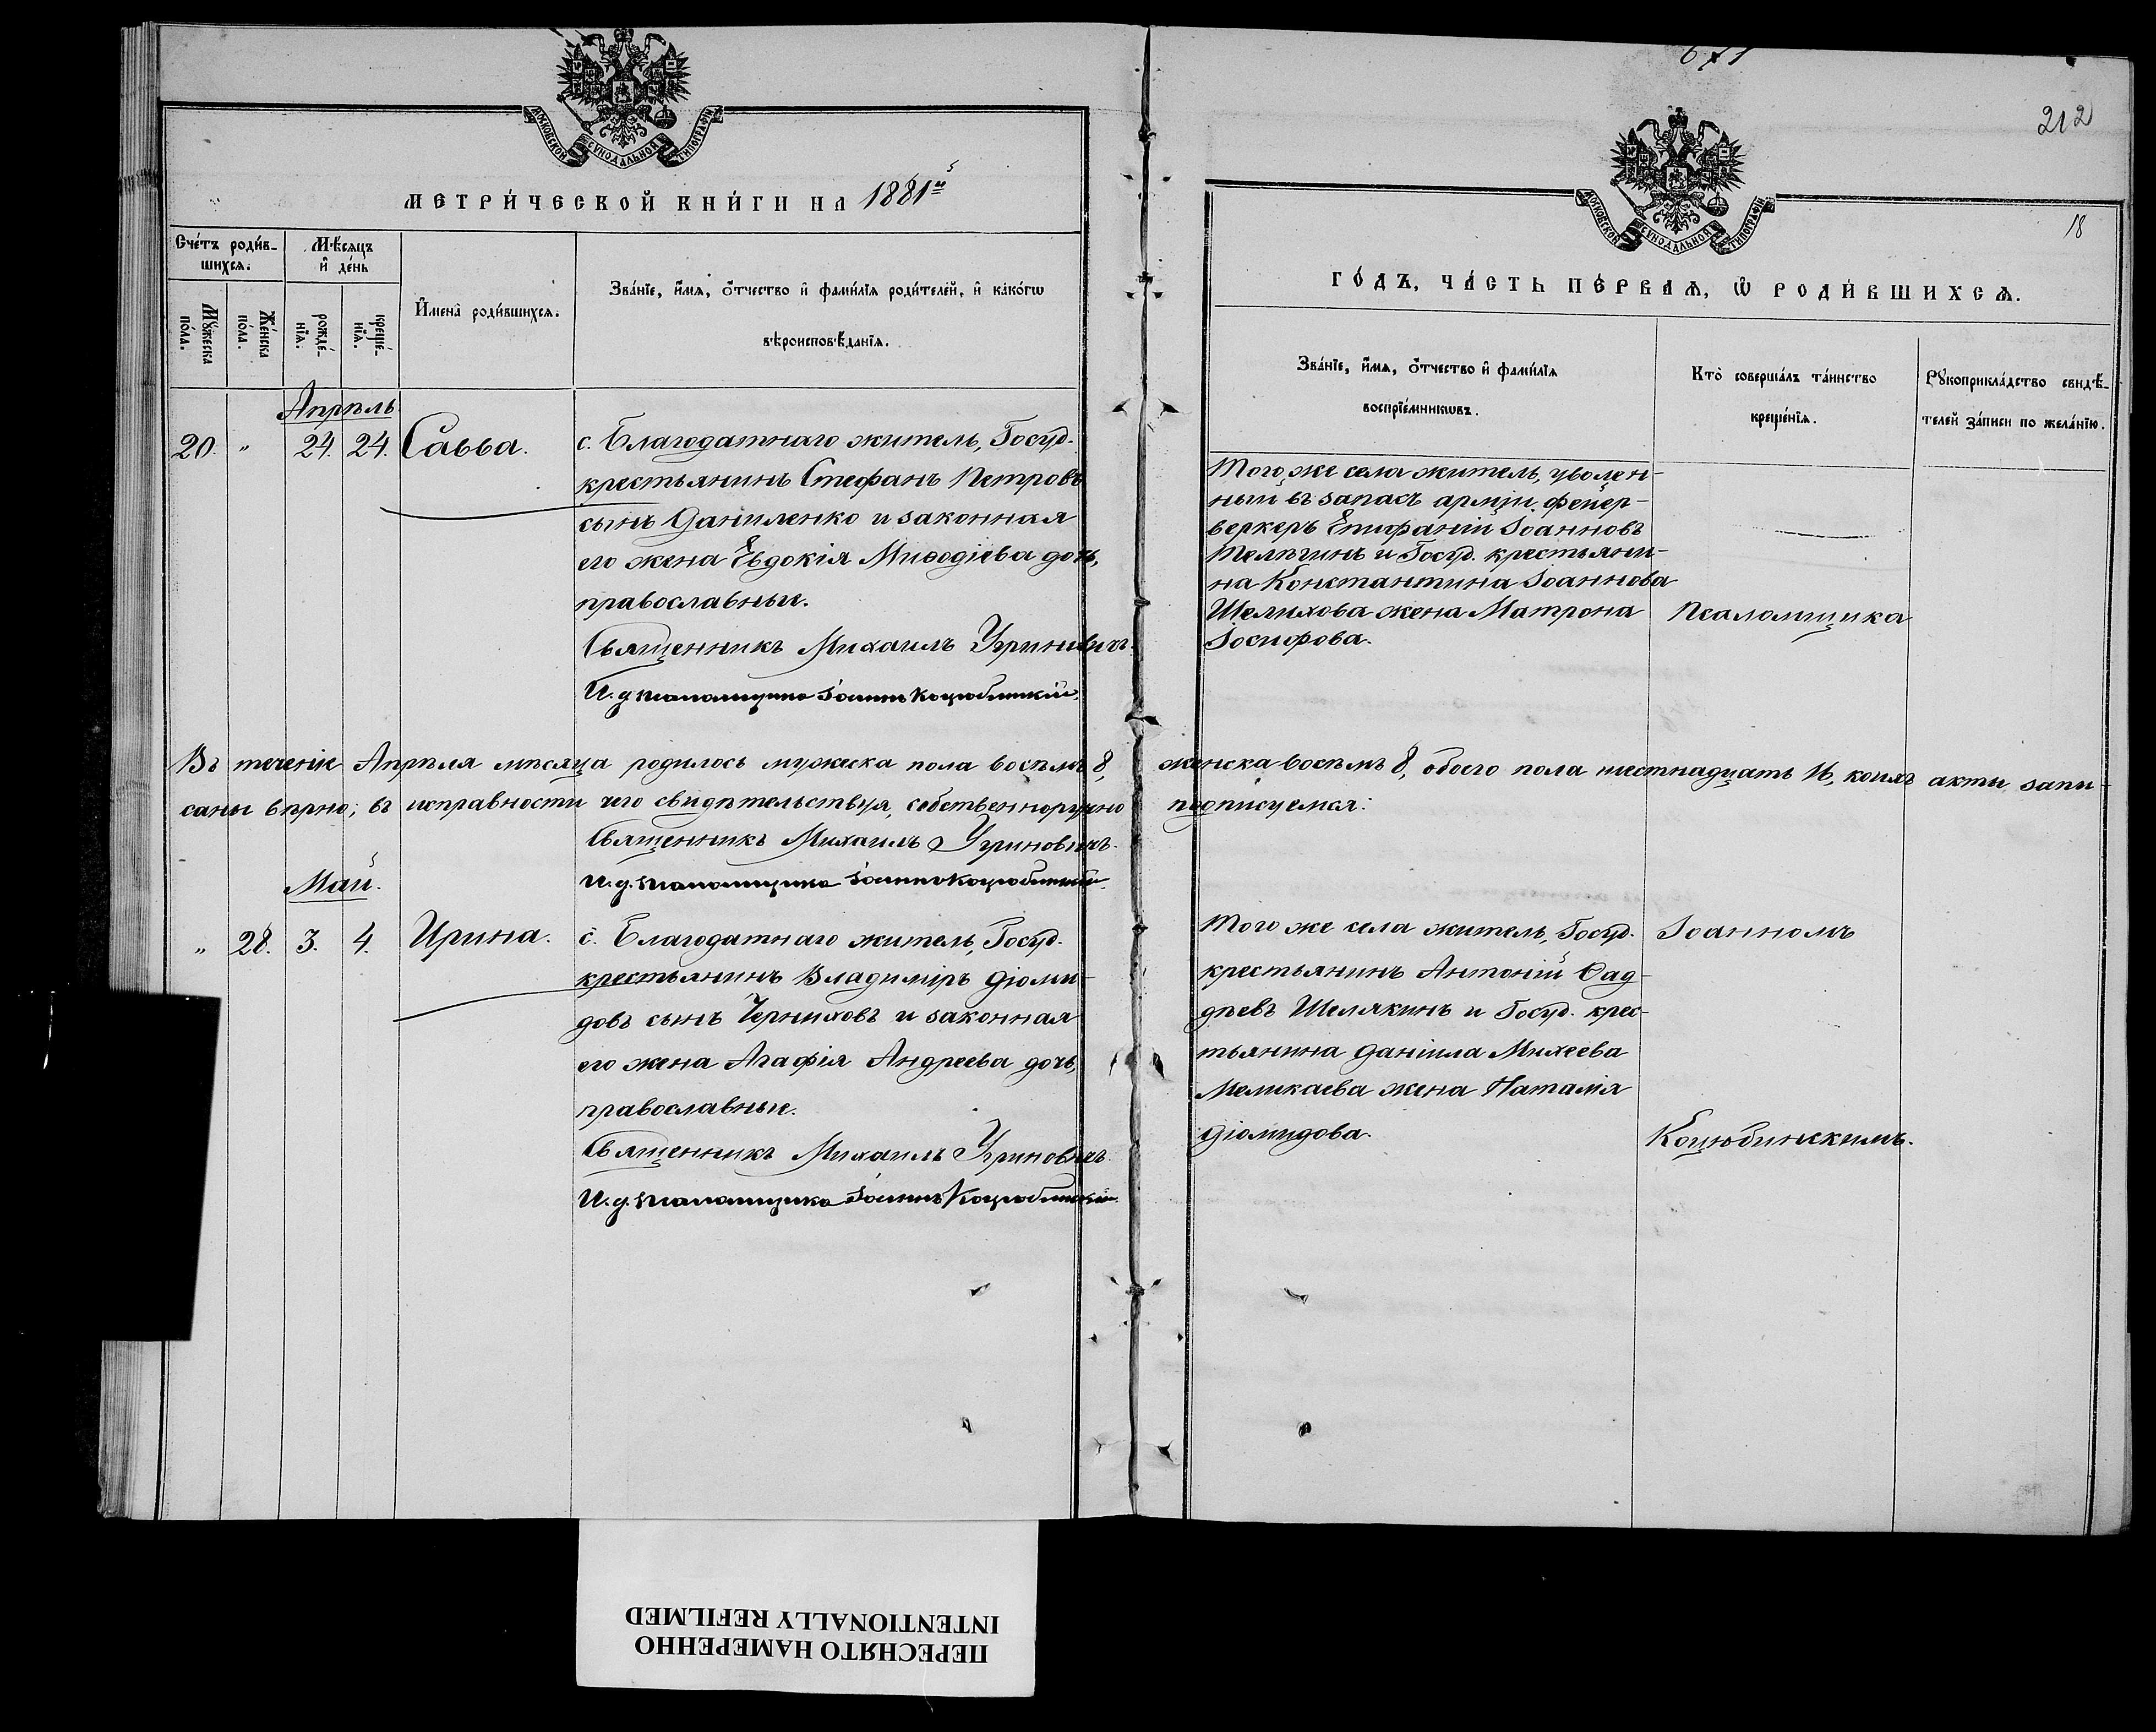 МОСКОВСКОЙ СѴНОДАЛЬНОЙ ТИПОГРАФІИ
МЕТРИ́ЧЕСКОЙ КНИ́ГИ НА 1881й
Сче́тъ роди́в-
шихся.
Мѣ́сяцъ
и҆ де́нь
Мꙋ́жеска
по́ла.
Же́нска
по́ла.
рожде́-
нїя.
креще́-
нїя.
И҆мена̀ роди́вшихся.
Зва́нїе, и҆́мя, ѻ҆́тчество и҆ фами́лїя роди́телей, и҆ како́гѡ
вѣроисповѣ́данїя.
Апрѣль
20. " 24. 24. Савва.
с. Благодатнаго житель, Госуд.
крестьянинъ Стефанъ Петровъ
сынъ Даниленко и законная
его жена Евдокія Миѳодіева дочь,
православные.
Священникъ Михаилъ Угриновичъ.
И. д. псаломщика Іоаннъ Коцюбинскій.
Въ теченіе Апрѣля мѣсяца родилось мужеска пола восѣмь 8,
саны вѣрно; въ исправности чего свидѣтельствуя, собственноручно
Священникъ Михаилъ Угриновичъ.
И. д. псаломщика Іоаннъ Коцюбинскій.
Май.
" 28. 3. 4. Ирина.
с. Благодатнаго житель, Госуд.
крестьянинъ Владиміръ Діоми-
довъ сынъ Черниховъ и законная
его жена Агафія Андреева дочь,
православные.
Священникъ Михаилъ Угриновичъ.
И. д. псаломщика Іоаннъ Коцюбинскій.
671
212
18
МОСКОВСКОЙ СѴНОДАЛЬНОЙ ТИПОГРАФІИ
ГО́ДЪ, ЧА́СТЬ ПЕ́РВАЯ, Ѡ҆ РОДИ́ВШИХСЯ.
Зва́нїе, и҆́мя, ѻ҆́тчество и҆ фами́лїя
воспрїе́мникѡвъ.
Кто̀ соверша́лъ та́инство
креще́нїя.
Рꙋкоприкла́дство свидѣ́-
телей за́писи по жела́нїю.
Того же села житель, уволен-
ный въ запасъ арміи фейер-
веркеръ Епифаній Іоанновъ
Телѣгинъ и Госуд. крестьяни-
на Константина Іоаннова
Шелихова жена Матрона
Іосифова.
Псаломщика
женска восѣмь 8, обоего пола шестнадцать 16, коихъ акты запи-
подписуемся:
Того же села житель, Госуд.
крестьянинъ Антоній Ѳад-
дѣевъ Шелякинъ и Госуд. крес-
тьянина Даніила Михеева
Меликаева жена Наталія
Діомидова.
Іоанномъ
Коцюбинскимъ.
ПЕРЕСНЯТО НАМЕРЕННО
INTENTIONALLY REFILMED